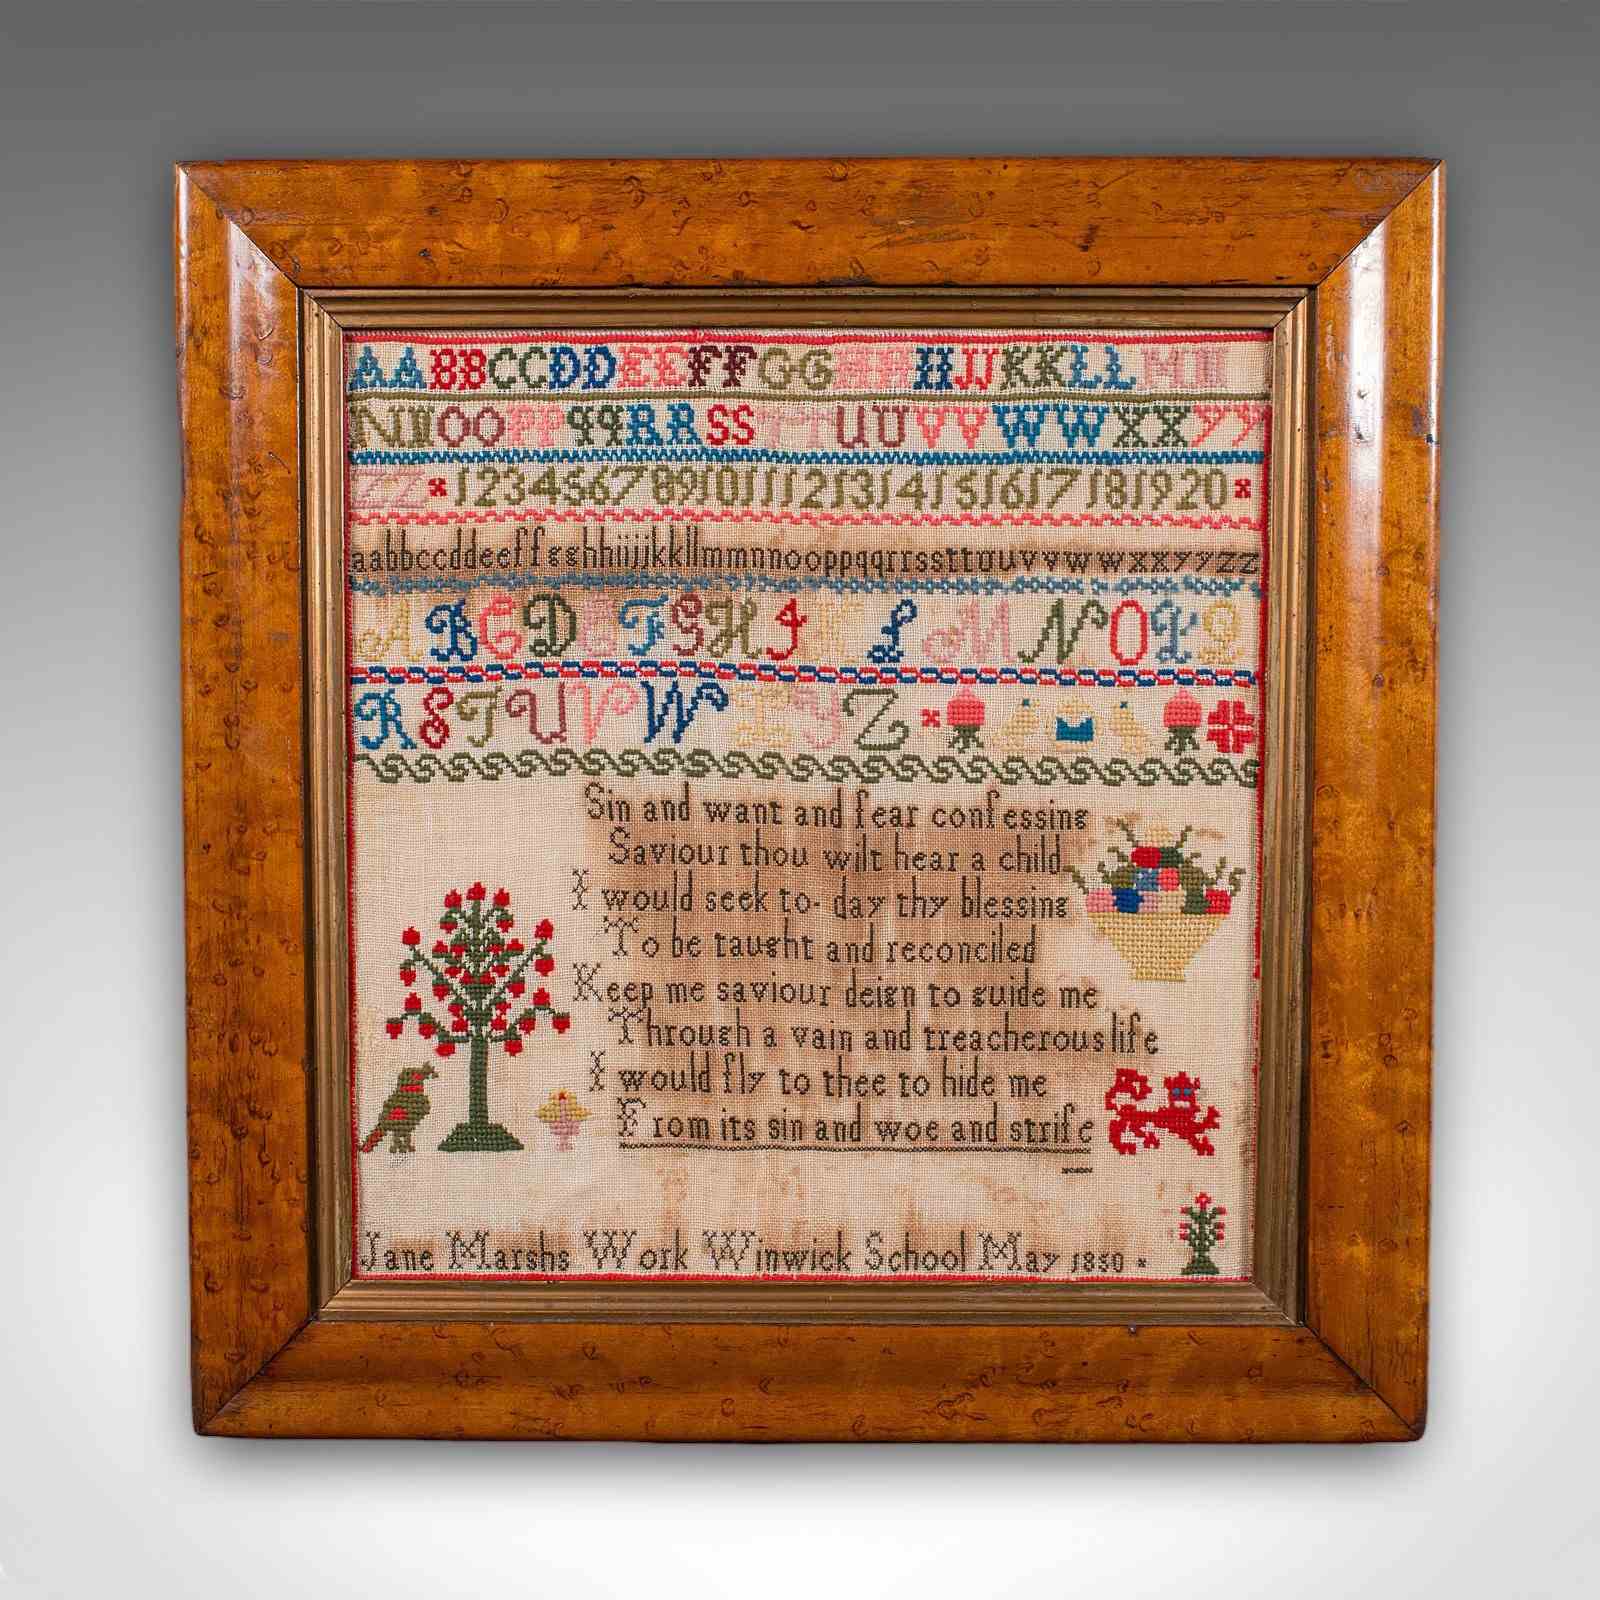 AABBCCDDEEFFGGHHJJKKLLMM
NNOOPPqqRRSSTTUUVVWWXXYY
ZZ 1234567891011121314151617181920
aabbccddeeffgghhiijjkkllmmnnooppqqrrssttuuvvwwxxyyzz
ABCDEFGHJKLMNOPQ
RSTUVWXYZ
Sin and want and fear confessing
Saviour thou wilt hear a child
I would seek to-day thy blessing
To be taught and reconciled
Keep me saviour deign to guide me
Through a vain and treacherous life
I would fly to thee to hide me
From its sin and woe and strife
Jane Marshs Work Winwick School May 1850